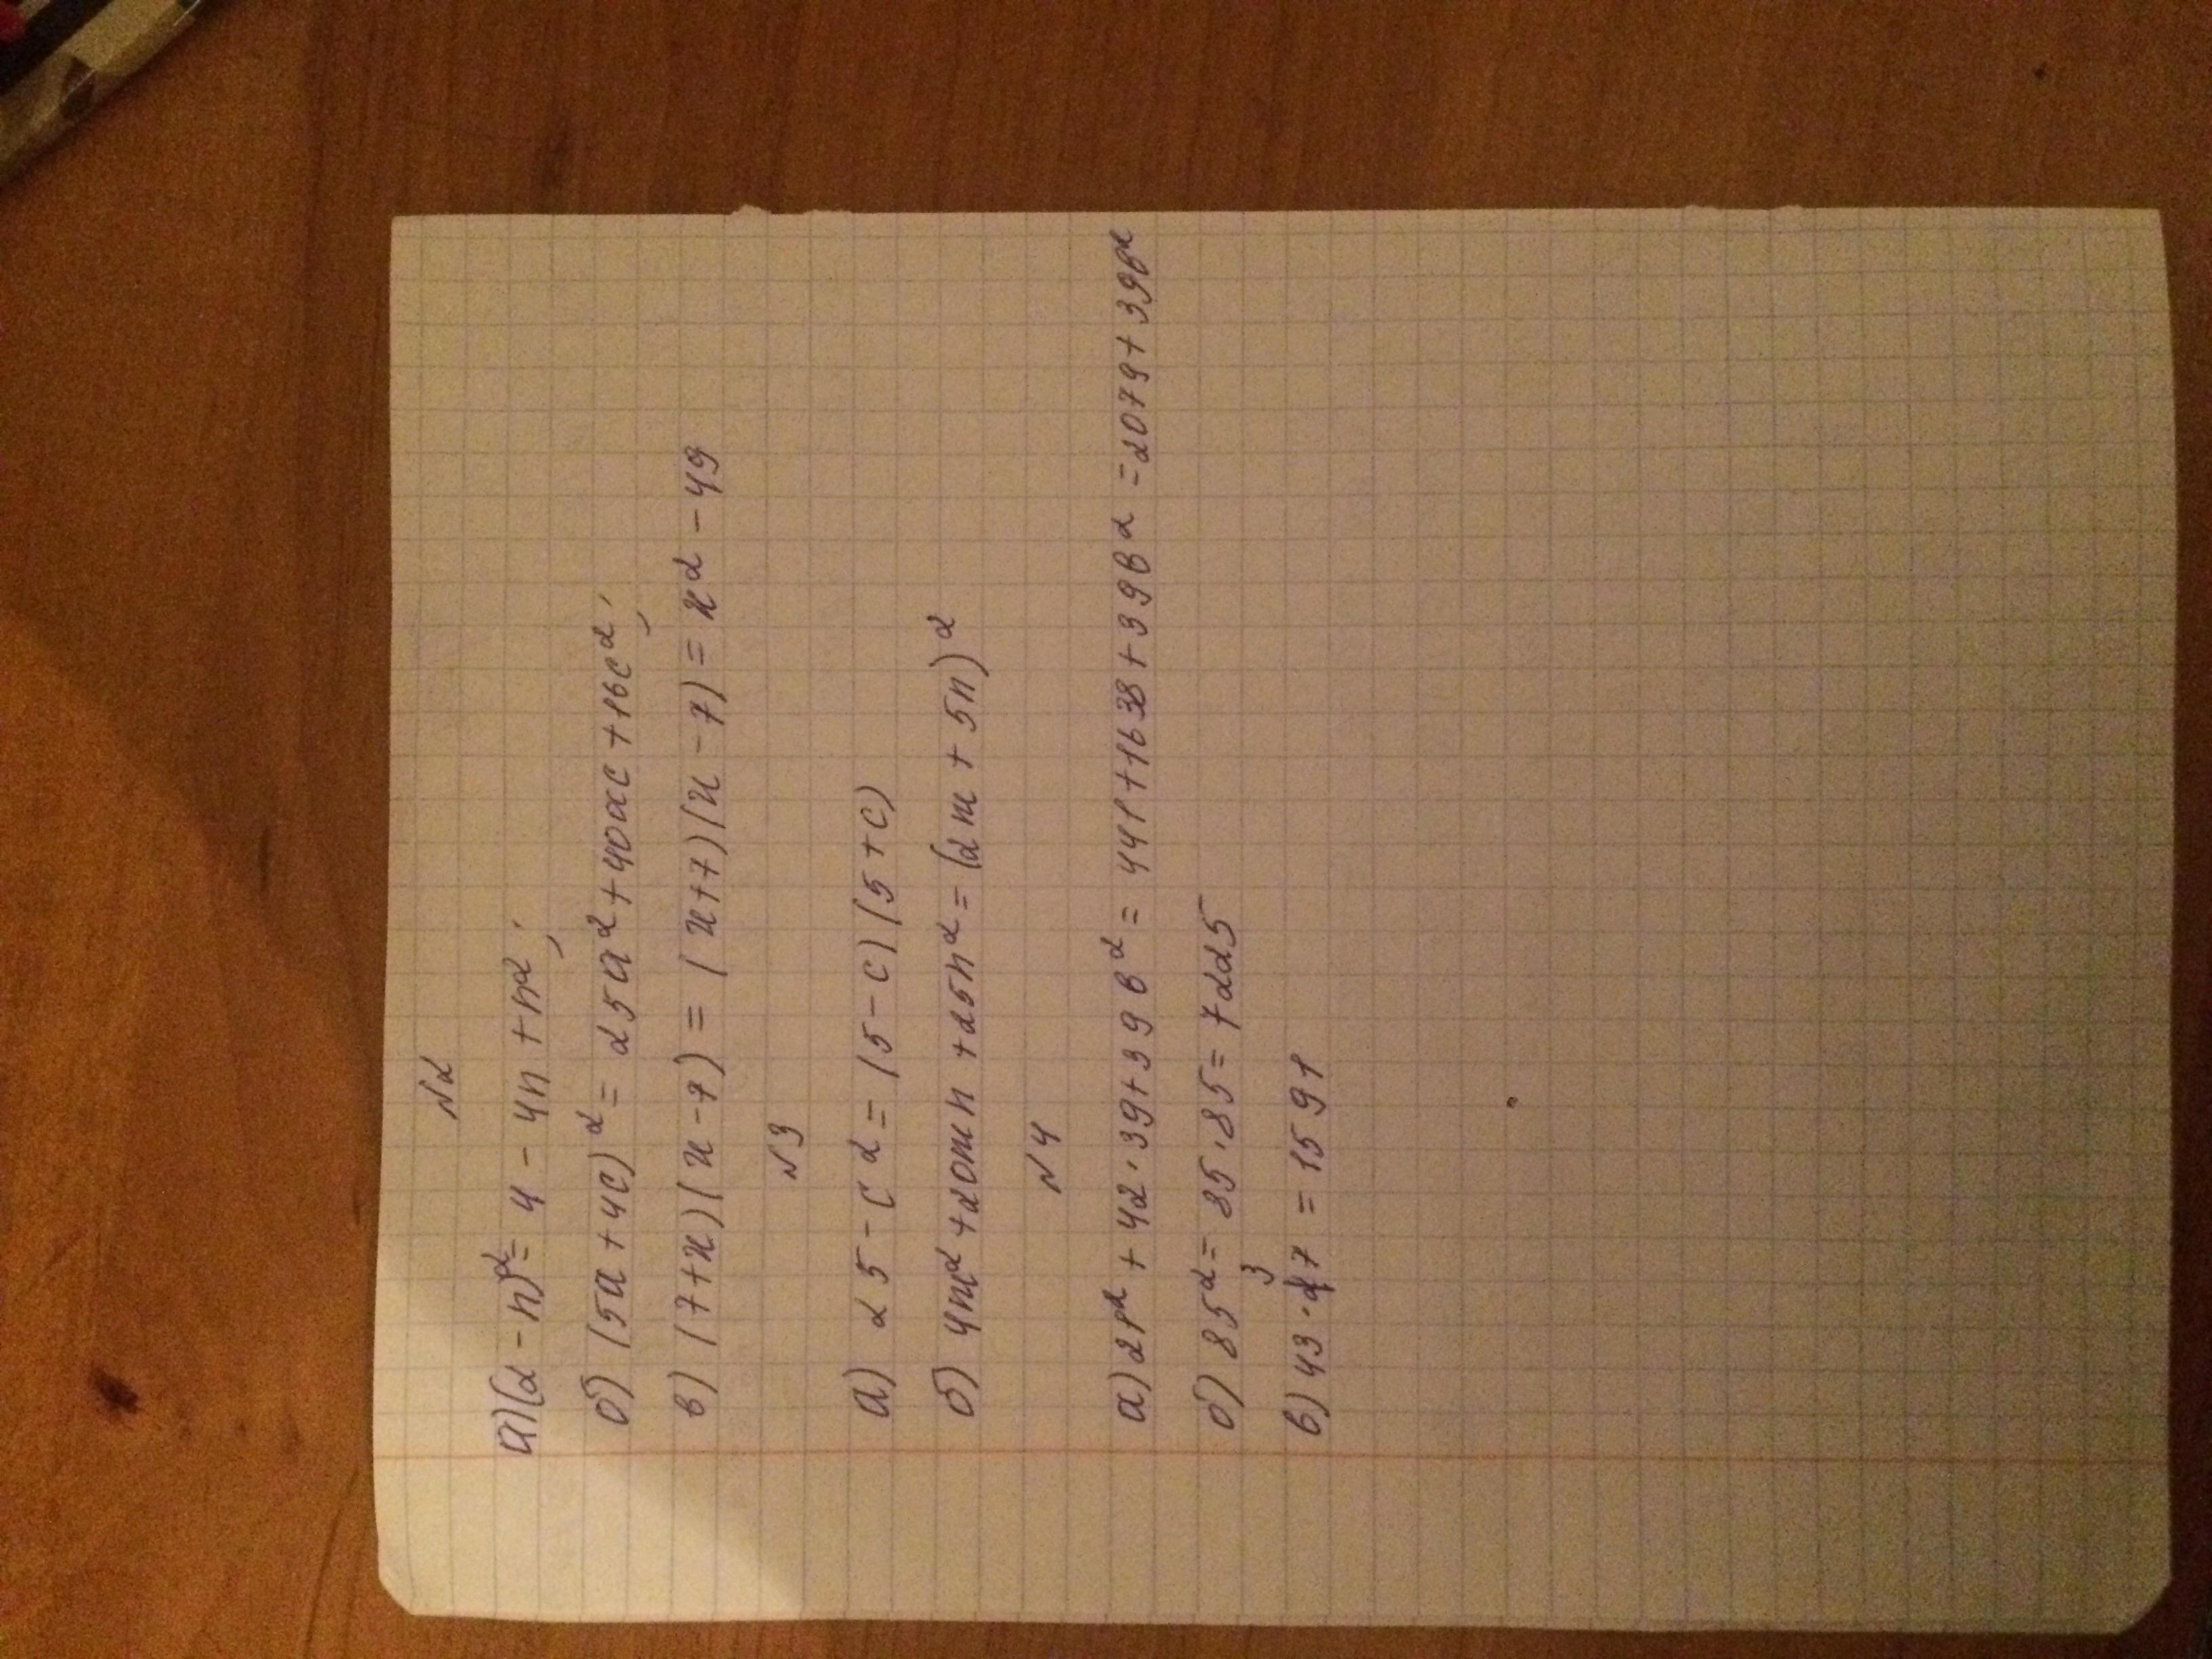 №2
а) (2 - n)² = 4 - 4n + n²;
б) (5a + 4c)² = 25a² + 40ac + 16c²;
в) (7+x)(x-7) = (x+7)(x-7) = x² - 49
№3
а) 25 - c² = (5-c)(5+c)
б) 4m² + 20mn + 25n² = (2m + 5n)²
№4
а) 21² + 42·39+39в² = 441+1638+39в² = 2079+39в²
б) 85² = 85·85 = 7225
в) 43·37 = 1591